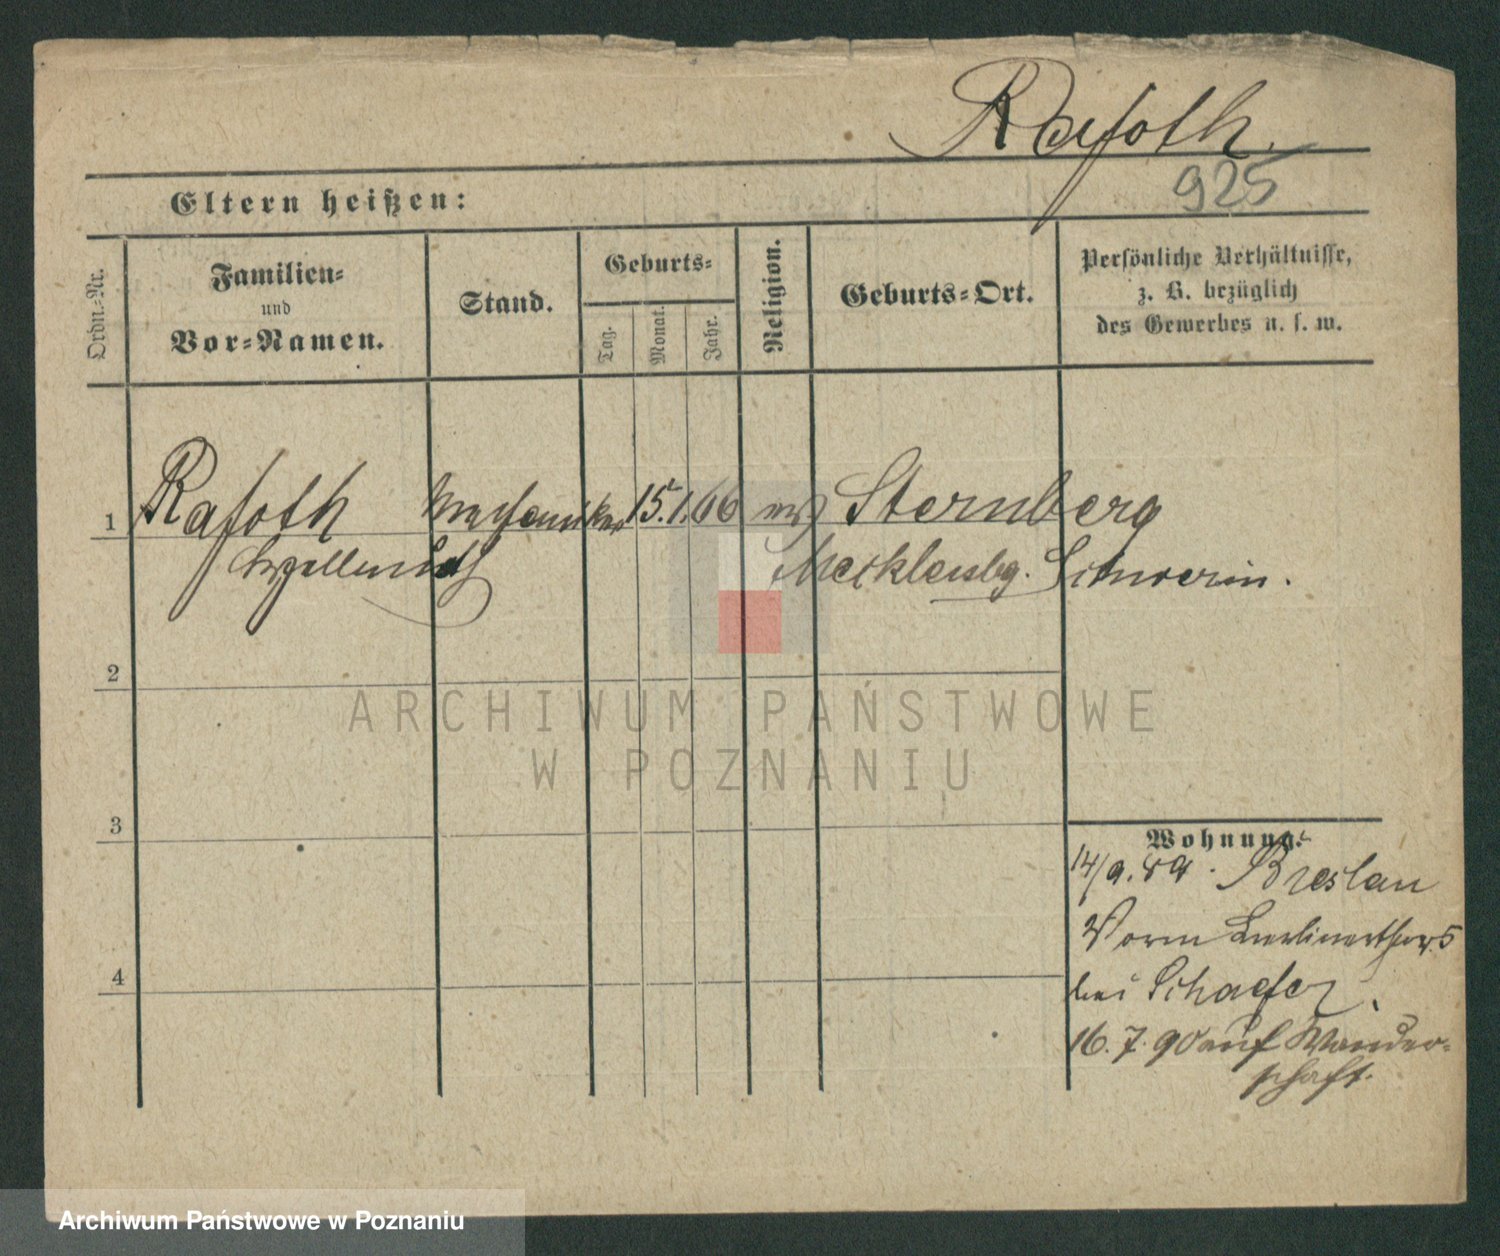 Rafoth.
925
Eltern heißen:
Ordn.-Nr.
Familien-
und
Vor-Namen.
Stand.
Geburts-
Tag.
Monat.
Jahr.
Religion.
Geburts-Ort.
Persönliche Verhältnisse,
z. B. bezüglich
des Gewerbes u. s. w.
1 Rafoth Mechaniker 15.1.66 Sternberg
Mecklenbg. Schwerin.
2
3
4
Wohnung.
14/9.89. Breslau
Vorm Berlinerthor 5
bei Schaefer
16.7.90 auf Wander-
schaft.
ARCHIWUM PAŃSTWOWE
W POZNANIU
Archiwum Państwowe w Poznaniu